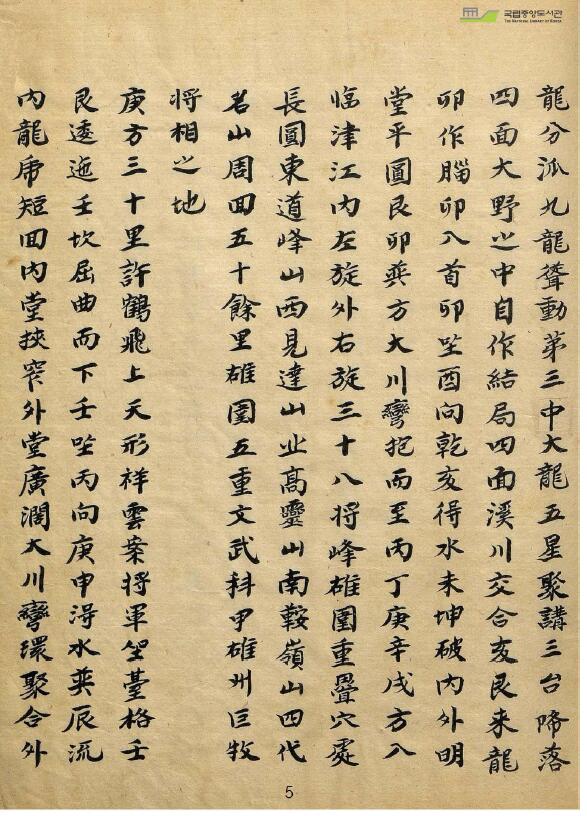 국립중앙도서관
THE NATIONAL LIBRARY OF KOREA
龍分派九龍聳動第三中大龍五星聚講三台降落
四面大野之中自作結局四面溪川交合亥艮来龍
卯作腦卯入首卯坐酉向乾亥得水未坤破内外明
堂平圓艮卯巽方大川彎抱而至丙丁庚辛戌方八
临津江内左旋外右旋三十八将峰雄圍重疊穴處
長圓東道峰山西見達山北高靈山南鞍嶺山四代
名山周回五十餘里雄圍五重文武科甲雄州巨牧
将相之地
庚方三十里許鶴飛上天形祥雲案将軍坐臺格壬
艮逶迤壬坎屈曲而下壬坐丙向庚申淂水巽辰流
内龍虎短回内堂挾窄外堂廣濶大川彎環聚合外
5